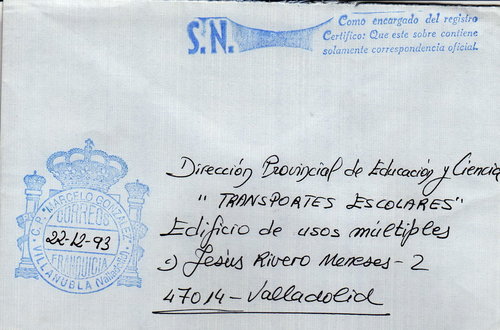 S.N.
Como encargado del registro
Certifico: Que este sobre contiene
solamente correspondencia oficial.
Dirección Provincial de Educación y Ciencia
"TRANSPORTES ESCOLARES"
Edificio de usos múltiples
Jesús Rivero Meneses - 2
47014 - Valladolid
C.P. MARCELO GONZALEZ
CORREOS
22-12-93
FRANQUICIA
VILLANUBLA (Valladolid)